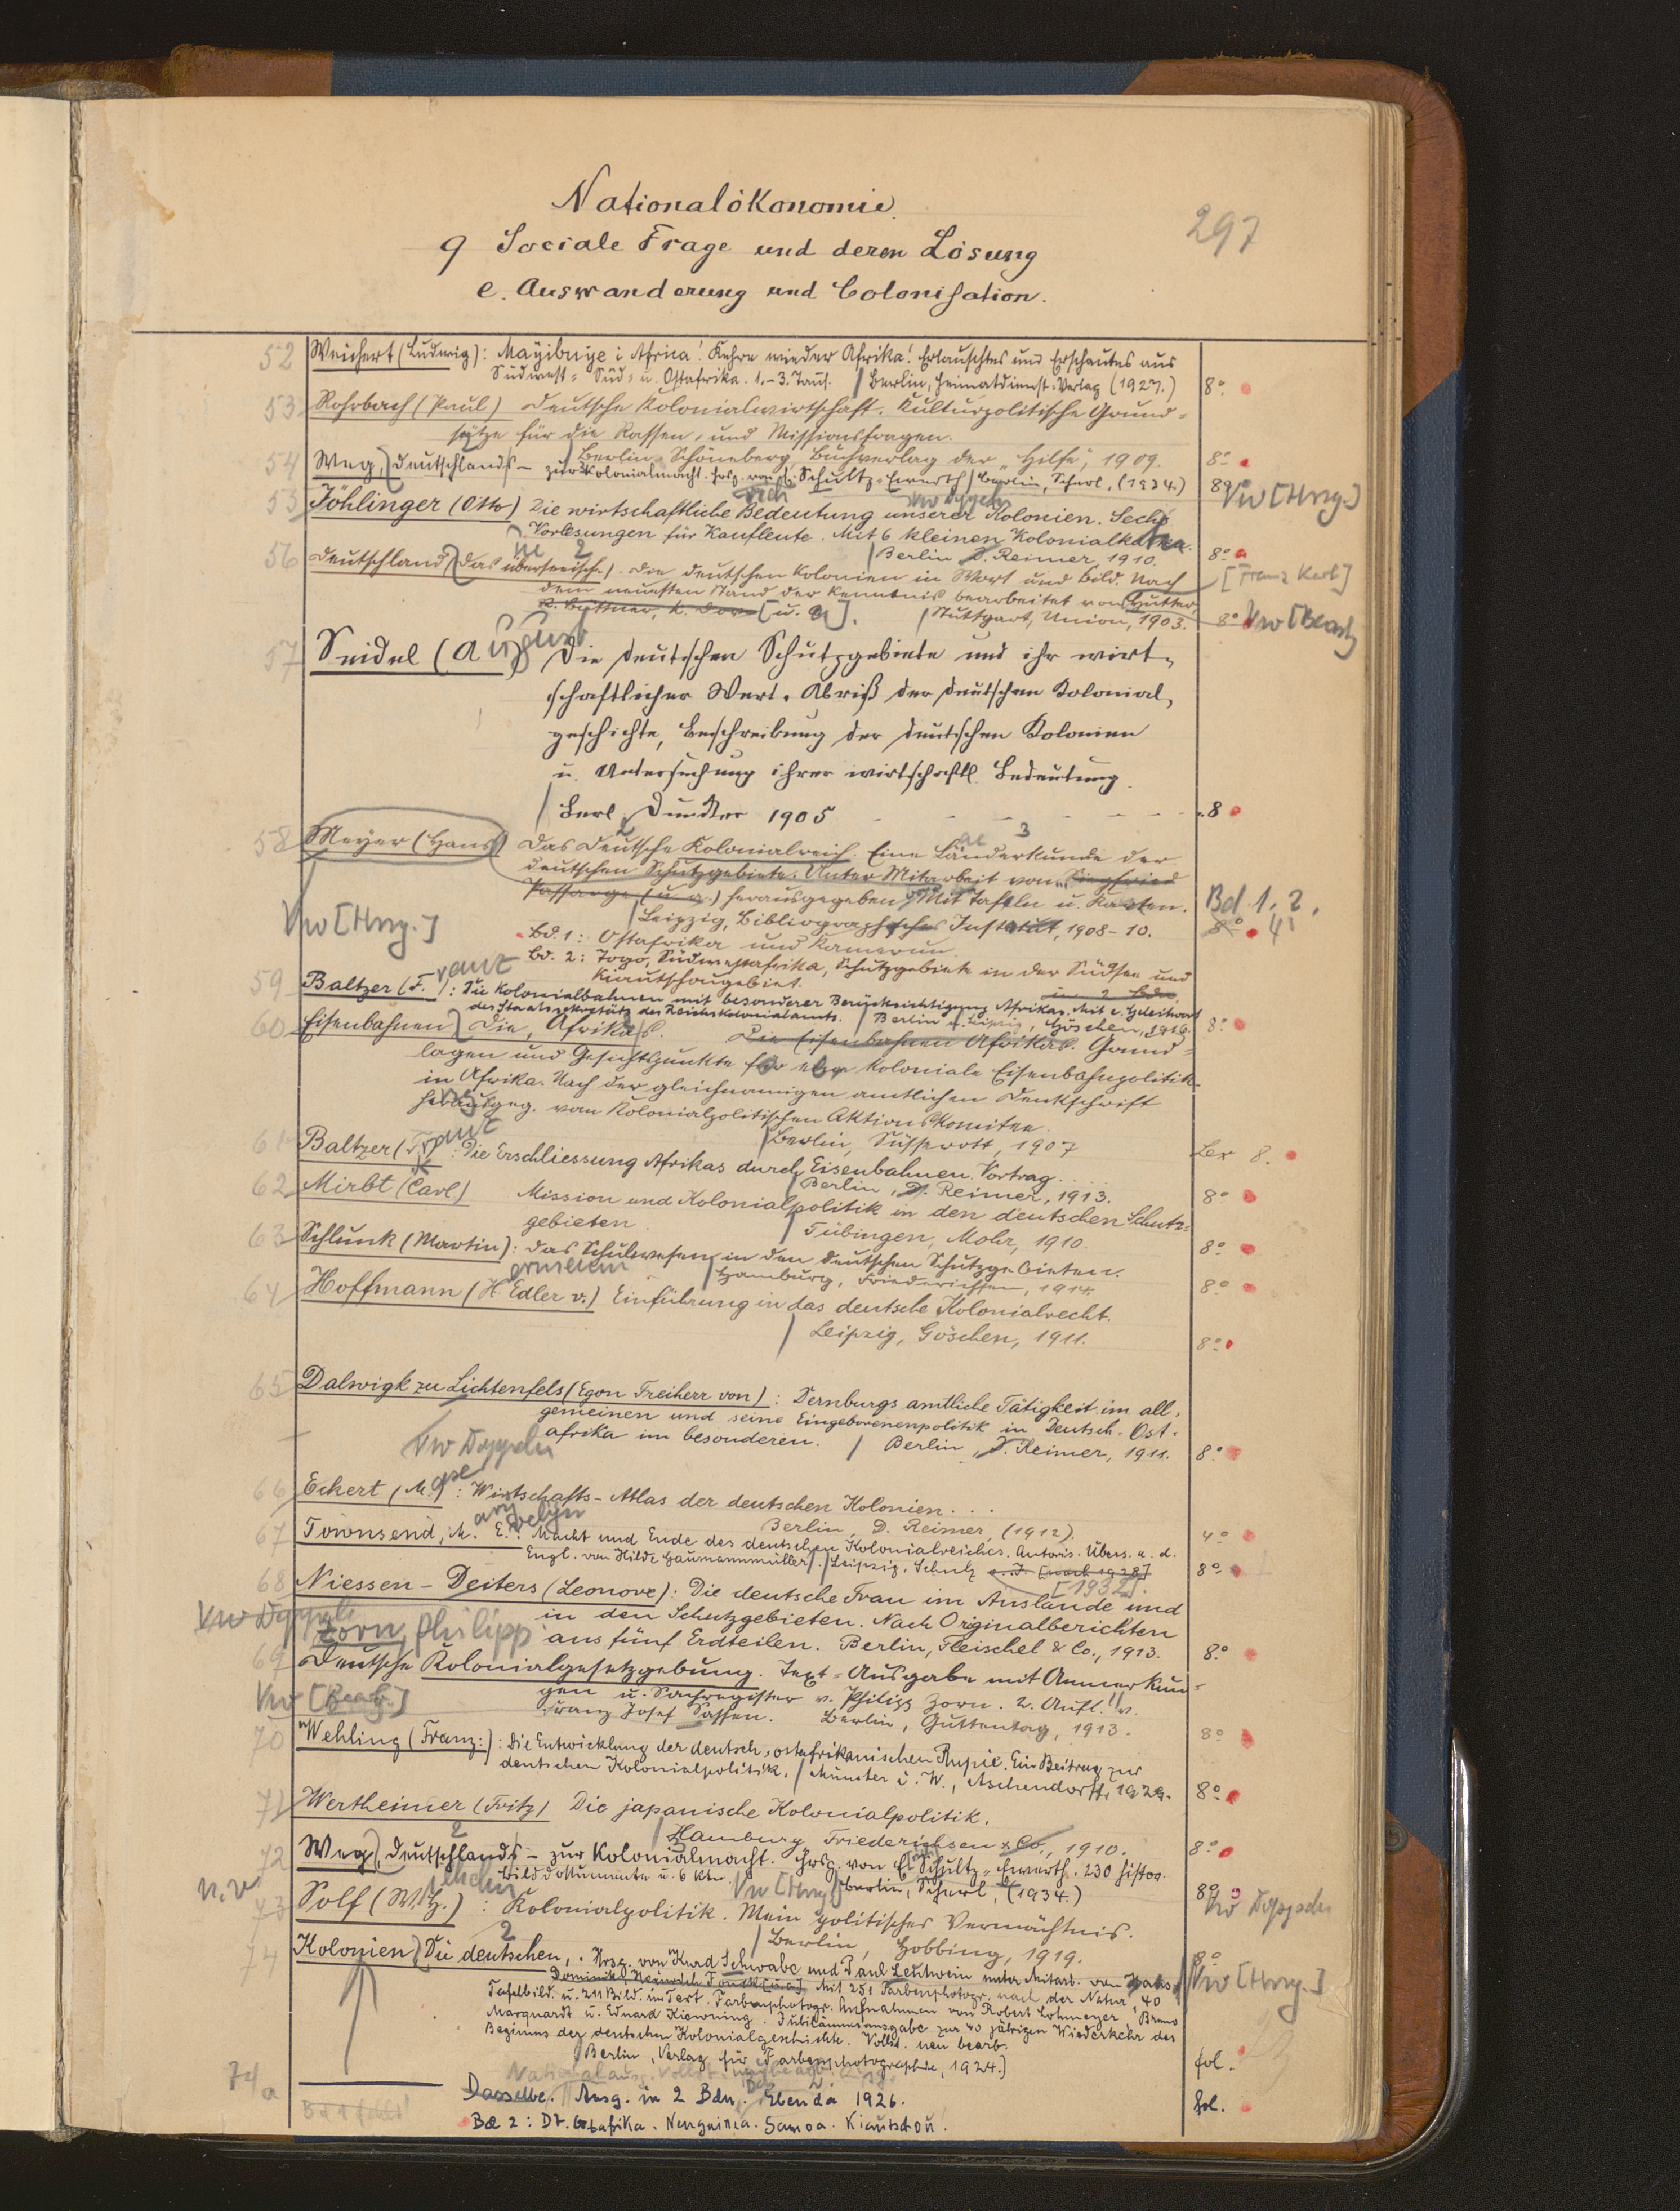 297
Nationalökonomie
9 Sociale Frage und deren Lösung
e. Auswanderung und Colonisation.
52 Weichert (Ludwig): Mayibuye i Africa! Kehre wieder Afrika! Erlauschtes und Erschautes aus
Südwest- Süd- u. Ostafrika. 1.-3. Taus. / Berlin, Heimatdienst-Verlag (1927.) 8°.
53 Rohrbach (Paul) Deutsche Kolonialwirtschaft. Kulturpolitische Grund-
sätze für die Rassen- und Missionsfragen.
/ Berlin-Schöneberg, Buchverlag der „Hilfe", 1909. 8°
54 Weg, Deutschlands - zur Kolonialmacht. Hrsg. von Schultz-Ewerth / Berlin, Scherl, (1934.) 8° Vw [Hrsg.]
55 Jöhlinger (Otto) Die wirtschaftliche Bedeutung unserer Kolonien. Sechs
Vorlesungen für Kaufleute. Mit 6 kleinen Kolonialkarten.
/ Berlin D. Reimer, 1910. 8°
56 Deutschland, das überseeische. Die deutschen Kolonien in Wort und Bild. Nach
dem neuesten Stand der Kenntnis bearbeitet von Hutter,
R. Büttner, K. Dove [u. a.]. / Stuttgart, Union, 1903. 8° Vw [Bearb
57 Seidel (August) Die deutschen Schutzgebiete und ihr wirt-
schaftlicher Wert. Abriß der deutschen Kolonial-
geschichte, Beschreibung der deutschen Kolonien
u. Untersuchung ihrer wirtschaftl. Bedeutung.
/ Berl. Dümmler 1905 8
58 Meyer (Hans) Das Deutsche Kolonialreich. Eine Länderkunde der
deutschen Schutzgebiete. Unter Mitarbeit von Siegfried
Passarge, (u. a.) herausgegeben. Mit Tafeln u. Karten. Bd. 1. 2.
/ Leipzig, Bibliographisches Institut, 1908-10. 8° 4°
Vw [Hrsg.]
Bd. 1: Ostafrika und Kamerun.
Bd. 2: Togo, Südwestafrika, Schutzgebiete in der Südsee und
Kiautschougebiet.
in 2 Bdn.
59 Baltzer (Franz): Die Kolonialbahnen mit besonderer Berücksichtigung Afrikas. Mit e. Geleitwort
des Staatssekretärs des Reichskolonialamts. / Berlin u. Leipzig, Göschen, 1916. 8°
60 Eisenbahnen, Die, Afrikas. Die Eisenbahnen Afrikas. Grund-
lagen und Gesichtspunkte für eine koloniale Eisenbahnpolitik
in Afrika. Nach der gleichnamigen amtlichen Denkschrift
herausgeg. vom Kolonialpolitischen Aktionskomitee.
/ Berlin, Süsserott, 1907 Lex 8.
61 Baltzer (Franz): Die Erschliessung Afrikas durch Eisenbahnen. Vortrag.
/ Berlin, D. Reimer, 1913. 8°
62 Mirbt (Carl) Mission und Kolonialpolitik in den deutschen Schutz-
gebieten. / Tübingen, Mohr, 1910. 8°
63 Schlunk (Martin): Das Schulwesen in den deutschen Schutzgebieten.
/ Hamburg, Friederichsen, 1914. 8°
64 Hoffmann (H. Edler v.) Einführung in das deutsche Kolonialrecht.
/ Leipzig, Göschen, 1911. 8°
65 Dalwigk zu Lichtenfels (Egon Freiherr von): Dernburgs amtliche Tätigkeit im all-
gemeinen und seine Eingeborenenpolitik in Deutsch-Ost-
afrika im besonderen. / Berlin, D. Reimer, 1911. 8°
Vw Doppeln
66 Eckert, M.: Wirtschafts-Atlas der deutschen Kolonien...
Berlin, D. Reimer, (1912). 4°
67 Townsend, Mary Evelyn: Macht und Ende des deutschen Kolonialreiches. Autoris. Übers. a. d.
Engl. von Hilde Gaumannmüller. / Leipzig, Schulz o. J. [nach 1928] 8°
[1932].
68 Niessen-Deiters (Leonore): Die deutsche Frau im Auslande und
in den Schutzgebieten. Nach Originalberichten
aus fünf Erdteilen. Berlin, Fleischel & Co., 1913. 8°
Zorn, Philipp
69 Deutsche Kolonialgesetzgebung. Text-Ausgabe mit Anmerkun-
gen u. Sachregister v. Philipp Zorn. 2. Aufl. v.
Franz Josef Sassen. Berlin, Guttentag, 1913. 8°
Vw [Bearb.]
70 Wehling (Franz): Die Entwicklung der deutsch-ostafrikanischen Rupie. Ein Beitrag zur
deutschen Kolonialpolitik. / Münster i. W., Aschendorff, 1929. 8°
71 Wertheimer (Fritz) Die japanische Kolonialpolitik.
/ Hamburg, Friederichsen & Co., 1910. 8°
72 Weg, Deutschlands - zur Kolonialmacht. Hrsg. von E. Schultz-Ewerth. 230 histor.
Bilddokumente u. 6 Ktn. Vw [Hrsg.] Berlin, Scherl, (1934.) 8°
73 Solf (W. H.): Kolonialpolitik. Mein politisches Vermächtnis.
/ Berlin, Hobbing, 1919. 8°
74 Kolonien, Die deutschen. Hrsg. von Kurd Schwabe und Paul Leutwein unter Mitarb. von Hans
Dominik, Heinrich Fonck [u. a.] Mit 251 Farbenphotogr. nach der Natur, 40
Tafelbild. u. 211 Bild. im Text. Farbenphotogr. Aufnahmen von Robert Lohmeyer, Bruno
Marquardt u. Eduard Kiewning. Jubiläumsausgabe zur 40 jährigen Wiederkehr des
Beginns der deutschen Kolonialgeschichte. Vollst. neu bearb.
/ Berlin, Verlag für Farbenphotographie, 1924.) fol.
Vw [Hrsg.]
74a Dasselbe. Ausg. in 2 Bdn. Ebenda 1926. fol.
Bd 2: Dt. Ostafrika. Neuguinea. Samoa. Kiautschou.